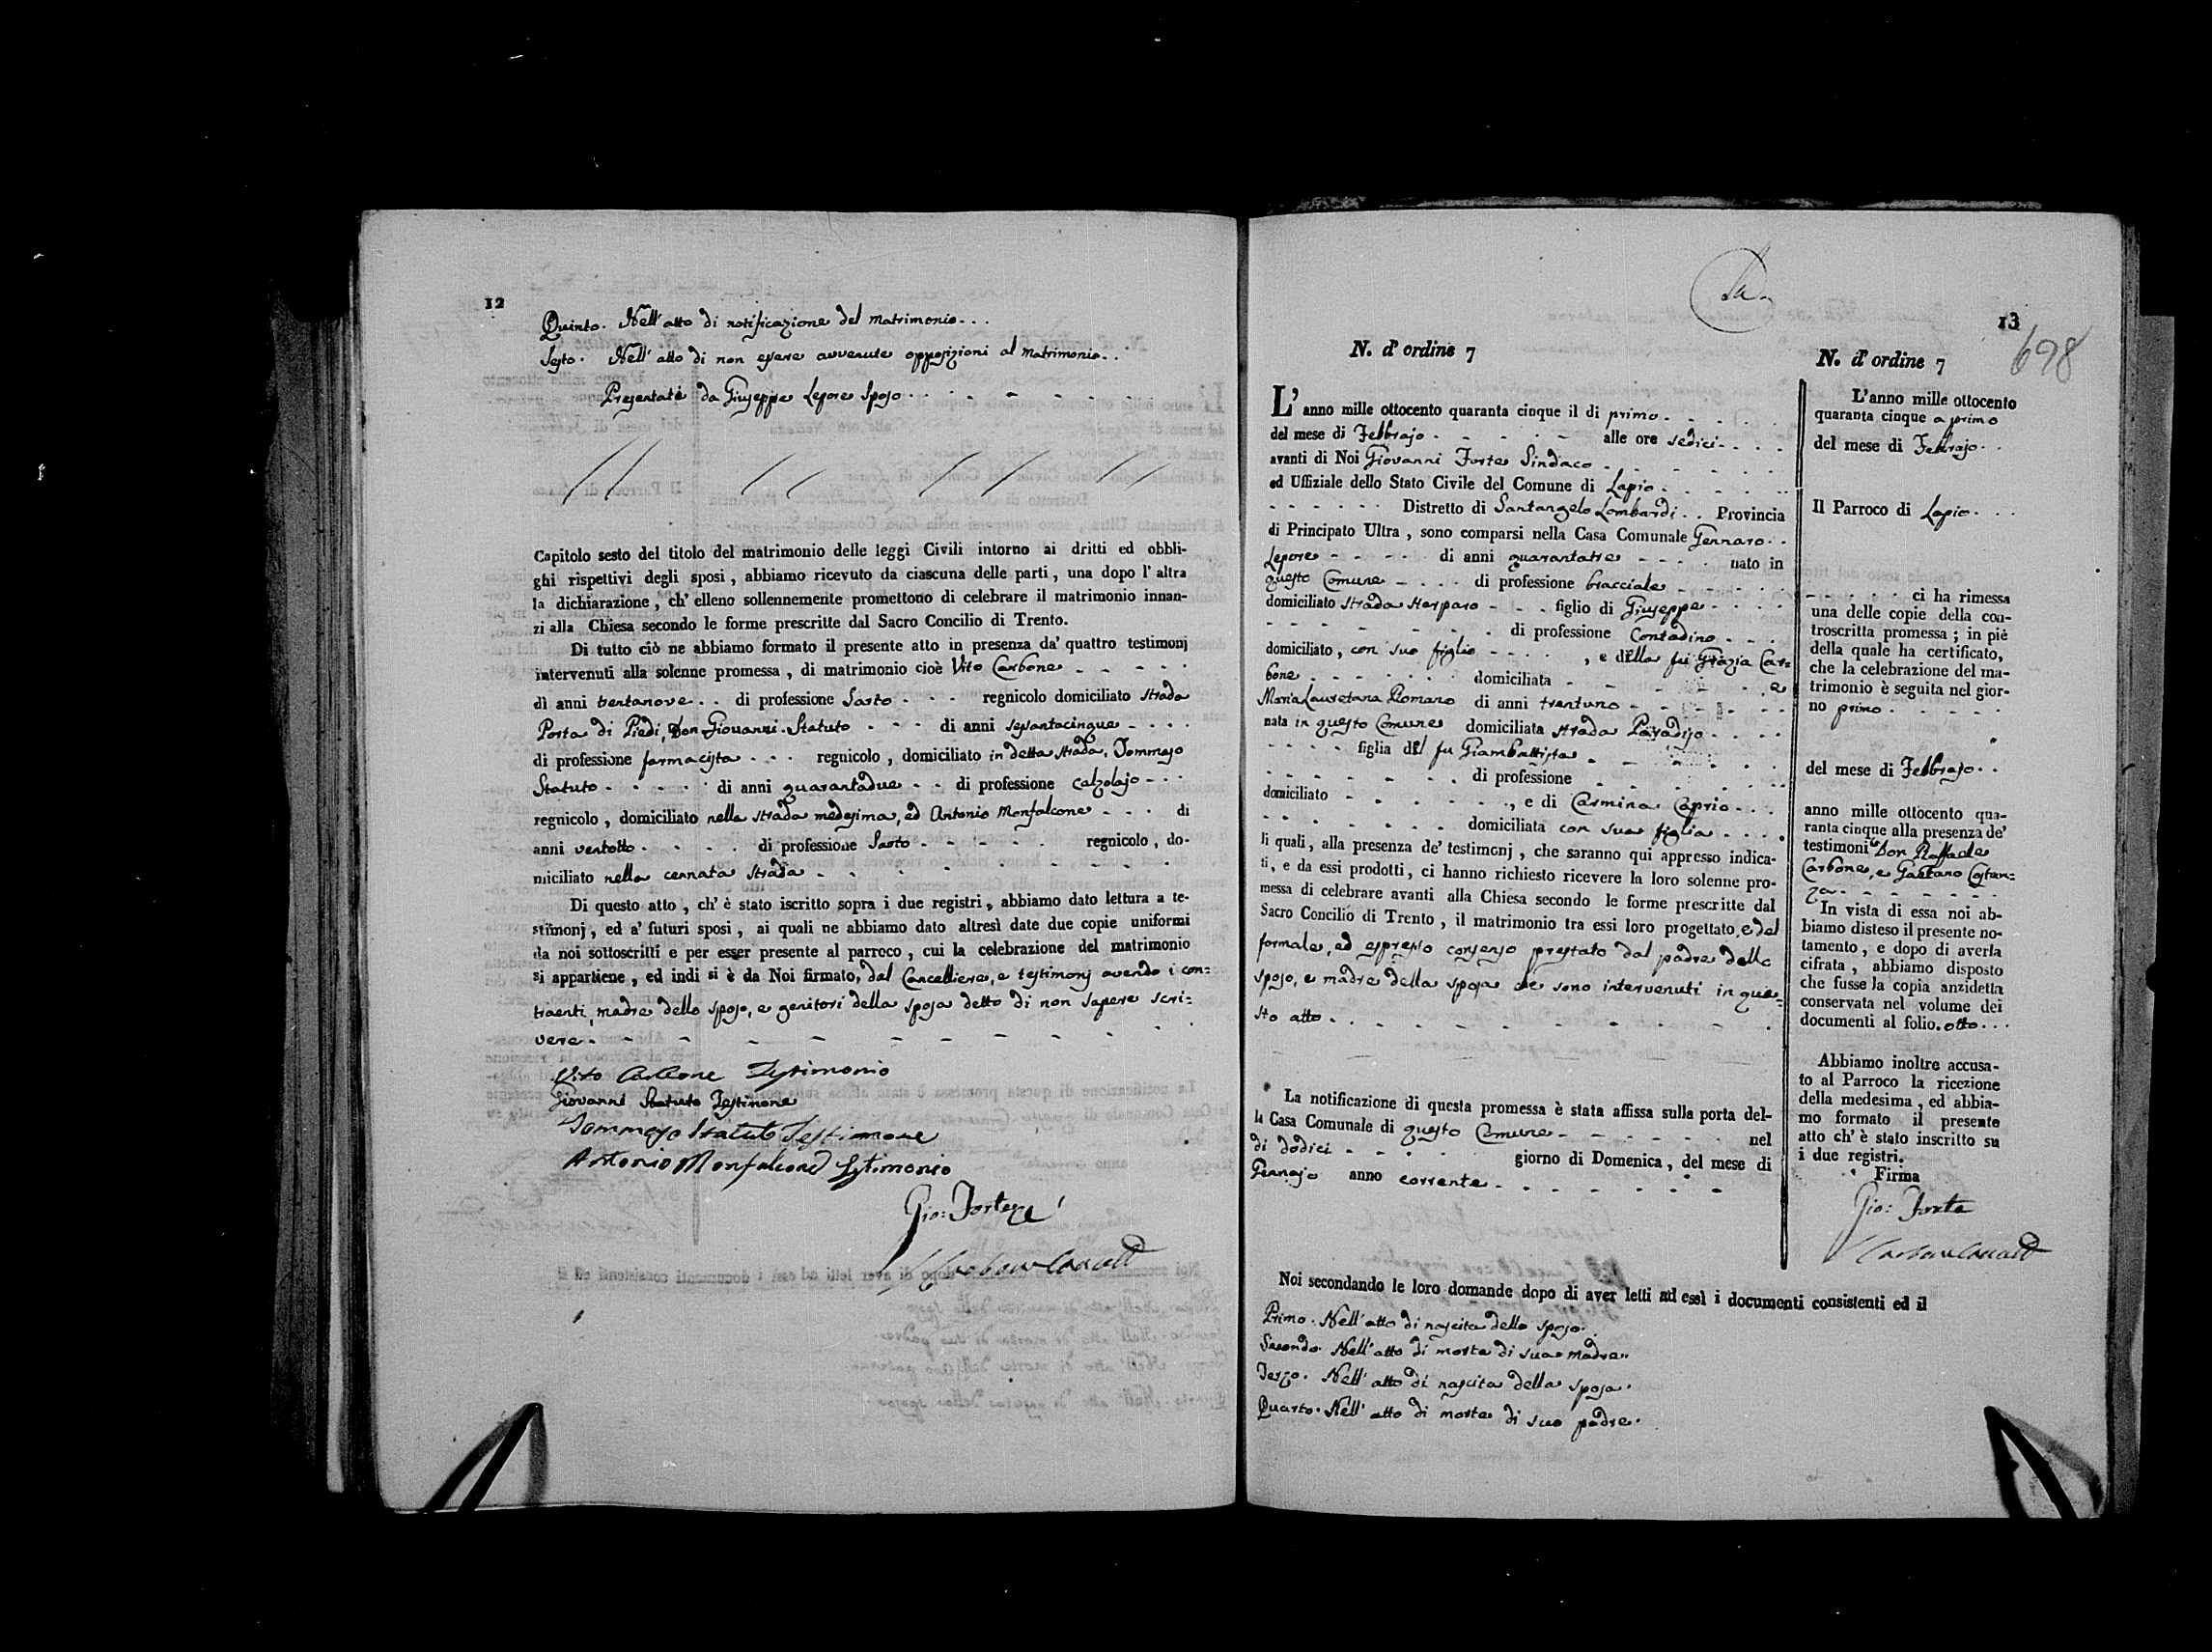 12
Quinto. Nell'atto di notificazione del matrimonio...
Sesto. Nell'atto di non essere avvenute opposizioni al matrimonio..
Presentate da Giuseppe Lepore sposo.
Capitolo sesto del titolo del matrimonio delle leggi Civili intorno ai dritti ed obbli-
ghi rispettivi degli sposi, abbiamo ricevuto da ciascuna delle parti, una dopo l'altra
la dichiarazione, ch'elleno sollennemente promettono di celebrare il matrimonio innan-
zi alla Chiesa secondo le forme prescritte dal Sacro Concilio di Trento.
Di tutto ciò ne abbiamo formato il presente atto in presenza da' quattro testimonj
intervenuti alla solenne promessa, di matrimonio cioè Vito Carbone
di anni trentanove.. di professione Sarto regnicolo domiciliato strada
Porta di Piedi, Don Giovanni Statuto di anni sessantacinque
di professione farmacista regnicolo, domiciliato in detta strada, Tommaso
Statuto di anni quarantadue di professione calzolajo
regnicolo, domiciliato nella strada medesima, ed Antonio Monfalcone di
anni ventotto di professione Sarto regnicolo, do-
miciliato nella cennata strada
Di questo atto, ch'è stato iscritto sopra i due registri, abbiamo dato lettura a te-
stimonj, ed a' futuri sposi, ai quali ne abbiamo dato altresì date due copie uniformi
da noi sottoscritti e per esser presente al parroco, cui la celebrazione del matrimonio
si appartiene, ed indi si è da Noi firmato, dal Cancelliere, e testimonj avendo i con=
traenti, madre dello sposo, e genitori della sposa detto di non sapere scri=
vere.
Vito Carbone Testimonio
Giovanni Statuto Testimone
Tommaso Statuto Testimone
Antonio Monfalcone Testimonio
Gio: Forte
13
698
N. d'ordine 7
L'anno mille ottocento quaranta cinque il di primo
del mese di Febbrajo alle ore sedici
avanti di Noi Giovanni Forte Sindaco
ed Uffiziale dello Stato Civile del Comune di Lapio
Distretto di Santangelo Lombardi.. Provincia
di Principato Ultra, sono comparsi nella Casa Comunale Gennaro
Lepore di anni quarantatre nato in
questo Comune di professione bracciale
domiciliato strada figlio di Giuseppe
di professione Contadino
domiciliato, con suo figlio, e della fu Grazia Car=
bone domiciliata e
Maria Lauretana Romano di anni trentuno
nata in questo Comune domiciliata strada Paradiso
figlia del fu Giambattista
di professione
domiciliato, e di Carmina Caprio
domiciliata con sua figlia
li quali, alla presenza de' testimonj, che saranno qui appresso indica-
ti, e da essi prodotti, ci hanno richiesto ricevere la loro solenne pro-
messa di celebrare avanti alla Chiesa secondo le forme prescritte dal
Sacro Concilio di Trento, il matrimonio tra essi loro progettato, e del
formale, ed espresso consenso prestato dal padre dello
sposo, e madre della sposa che sono intervenuti in que=
sto atto.
La notificazione di questa promessa è stata affissa sulla porta del-
la Casa Comunale di questo Comune nel
di dodici giorno di Domenica, del mese di
Gennajo anno corrente
Noi secondando le loro domande dopo di aver letti ad essi i documenti consistenti ed il
Primo. Nell'atto di nascita dello sposo.
Secondo. Nell'atto di morte di sua madre.
Terzo. Nell'atto di nascita della sposa.
Quarto. Nell'atto di morte di suo padre.
N. d'ordine 7
L'anno mille ottocento
quaranta cinque a primo
del mese di Febbrajo
Il Parroco di Lapio
ci ha rimessa
una delle copie della con-
troscritta promessa; in piè
della quale ha certificato,
che la celebrazione del ma-
trimonio è seguita nel gior-
no primo
del mese di Febbrajo
anno mille ottocento qua-
ranta cinque alla presenza de'
testimoni Don Raffaele
Carbone, e Gaetano Costan=
za
In vista di essa noi ab-
biamo disteso il presente no-
tamento, e dopo di averla
cifrata, abbiamo disposto
che fusse la copia anzidetta
conservata nel volume dei
documenti al folio otto
Abbiamo inoltre accusa-
to al Parroco la ricezione
della medesima, ed abbia-
mo formato il presente
atto ch'è stato inscritto su
i due registri.
Firma
Gio: Forte